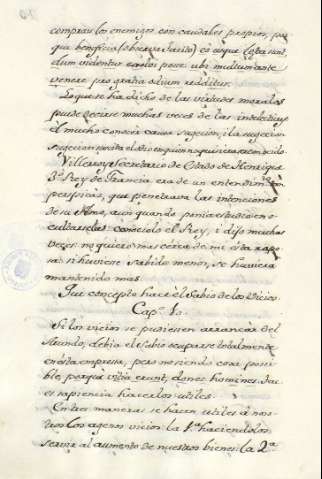 comprar los enemigos con caudales propios, por
que beneficia (observa Tacito) eò usque læta sunt,
dum videntur exolvi posse: ubi multum ante
venere pro gratia odium redditur.
Lo que se ha dicho de las virtudes morales
puede decirse muchas veces de las intelectuales
el mucho causa sugecion, i la sugecion
Villeroy Secretario de Estado de Henrique
3º Rey de Francia era de un entendim.to tan
perspicaz, que penetrava las intenciones
de su Amo, aun quando ponia estudio en o-
cultarselas: conociolo el Rey, i dijo muchas
vezes: no quiero mas cerca de mi ésta rapo-
sa: si huviese sabido menos, se huviera
mantenido mas.
Que concepto hace el Sabio de los Vicios.
Cap.
Si los vicios se pudiesen arrancar del
Mundo, debia el Sabio ocuparse totalmente
en ésta empresa, pero no siendo cosa posi-
ble, porque vitia erunt, donec homines
es sapiencia hacerlos utiles.
maneras se hacen utiles á nos-
otros los agenos vicios: la 1ª haciendolos
servir al aumento de nuestros bienes: la 2ª